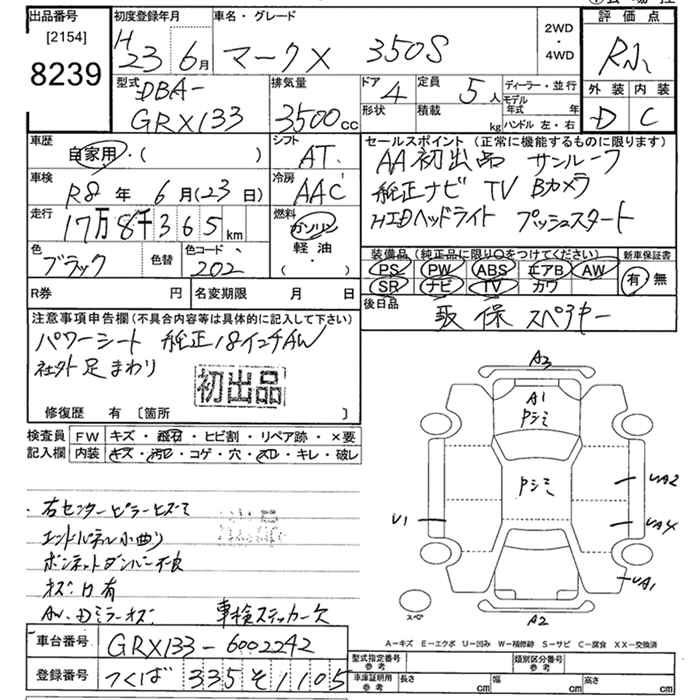 出品番号 [2154] 8239
初度登録年月 H 23 6月
車名・グレード マークX 350S
2WD・4WD
評価点 RA
外装 D 内装 C
型式 DBA- GRX133
排気量 3500cc
ドア 4 形状
定員 5人 積載 kg
ディーラー・並行
モデル年式 年
ハンドル 左・右
車歴 自家用・( )
シフト AT
セールスポイント(正常に機能するものに限ります)
AA初出品 サンルーフ
純正ナビ TV Bカメラ
HIDヘッドライト プッシュスタート
車検 R8年 6月(23日)
冷房 AAC
走行 17万8千365km
燃料 ガソリン・軽油・( )
色 ブラック 色替
色コード 202
装備品(純正品に限り○をつけてください)
PS PW ABS エアB AW
SR ナビ TV カワ
新車保証書 有 無
R券 円 名変期限 月 日
後日品 取 保 スペアキー
注意事項申告欄(不具合内容等は具体的に記入して下さい)
パワーシート 純正18インチAW
社外足まわり
初出品
修復歴 有 〔箇所 〕
検査員記入欄 FW キズ・飛石・ヒビ割・リペア跡・×要
内装 キズ・汚れ・コゲ・穴・スレ・キレ・破レ
A3
A1
Pシミ
Pシミ
UA2
U1
UA4
UA1
スペア
A2
・右センターピラーヒズミ
エンドパネル小曲り
ボンネットダンパー不良
AW・Dミラーキズ 車検ステッカー欠
A-キズ E-エクボ U-凹み W-補修跡 S-サビ C-腐食 XX-交換済
車台番号 GRX133-6002242
登録番号 つくば 335 そ 1105
型式指定番号 参考
類別区分番号 参考
車庫証明用 参考 長さ cm 幅 cm 高さ cm